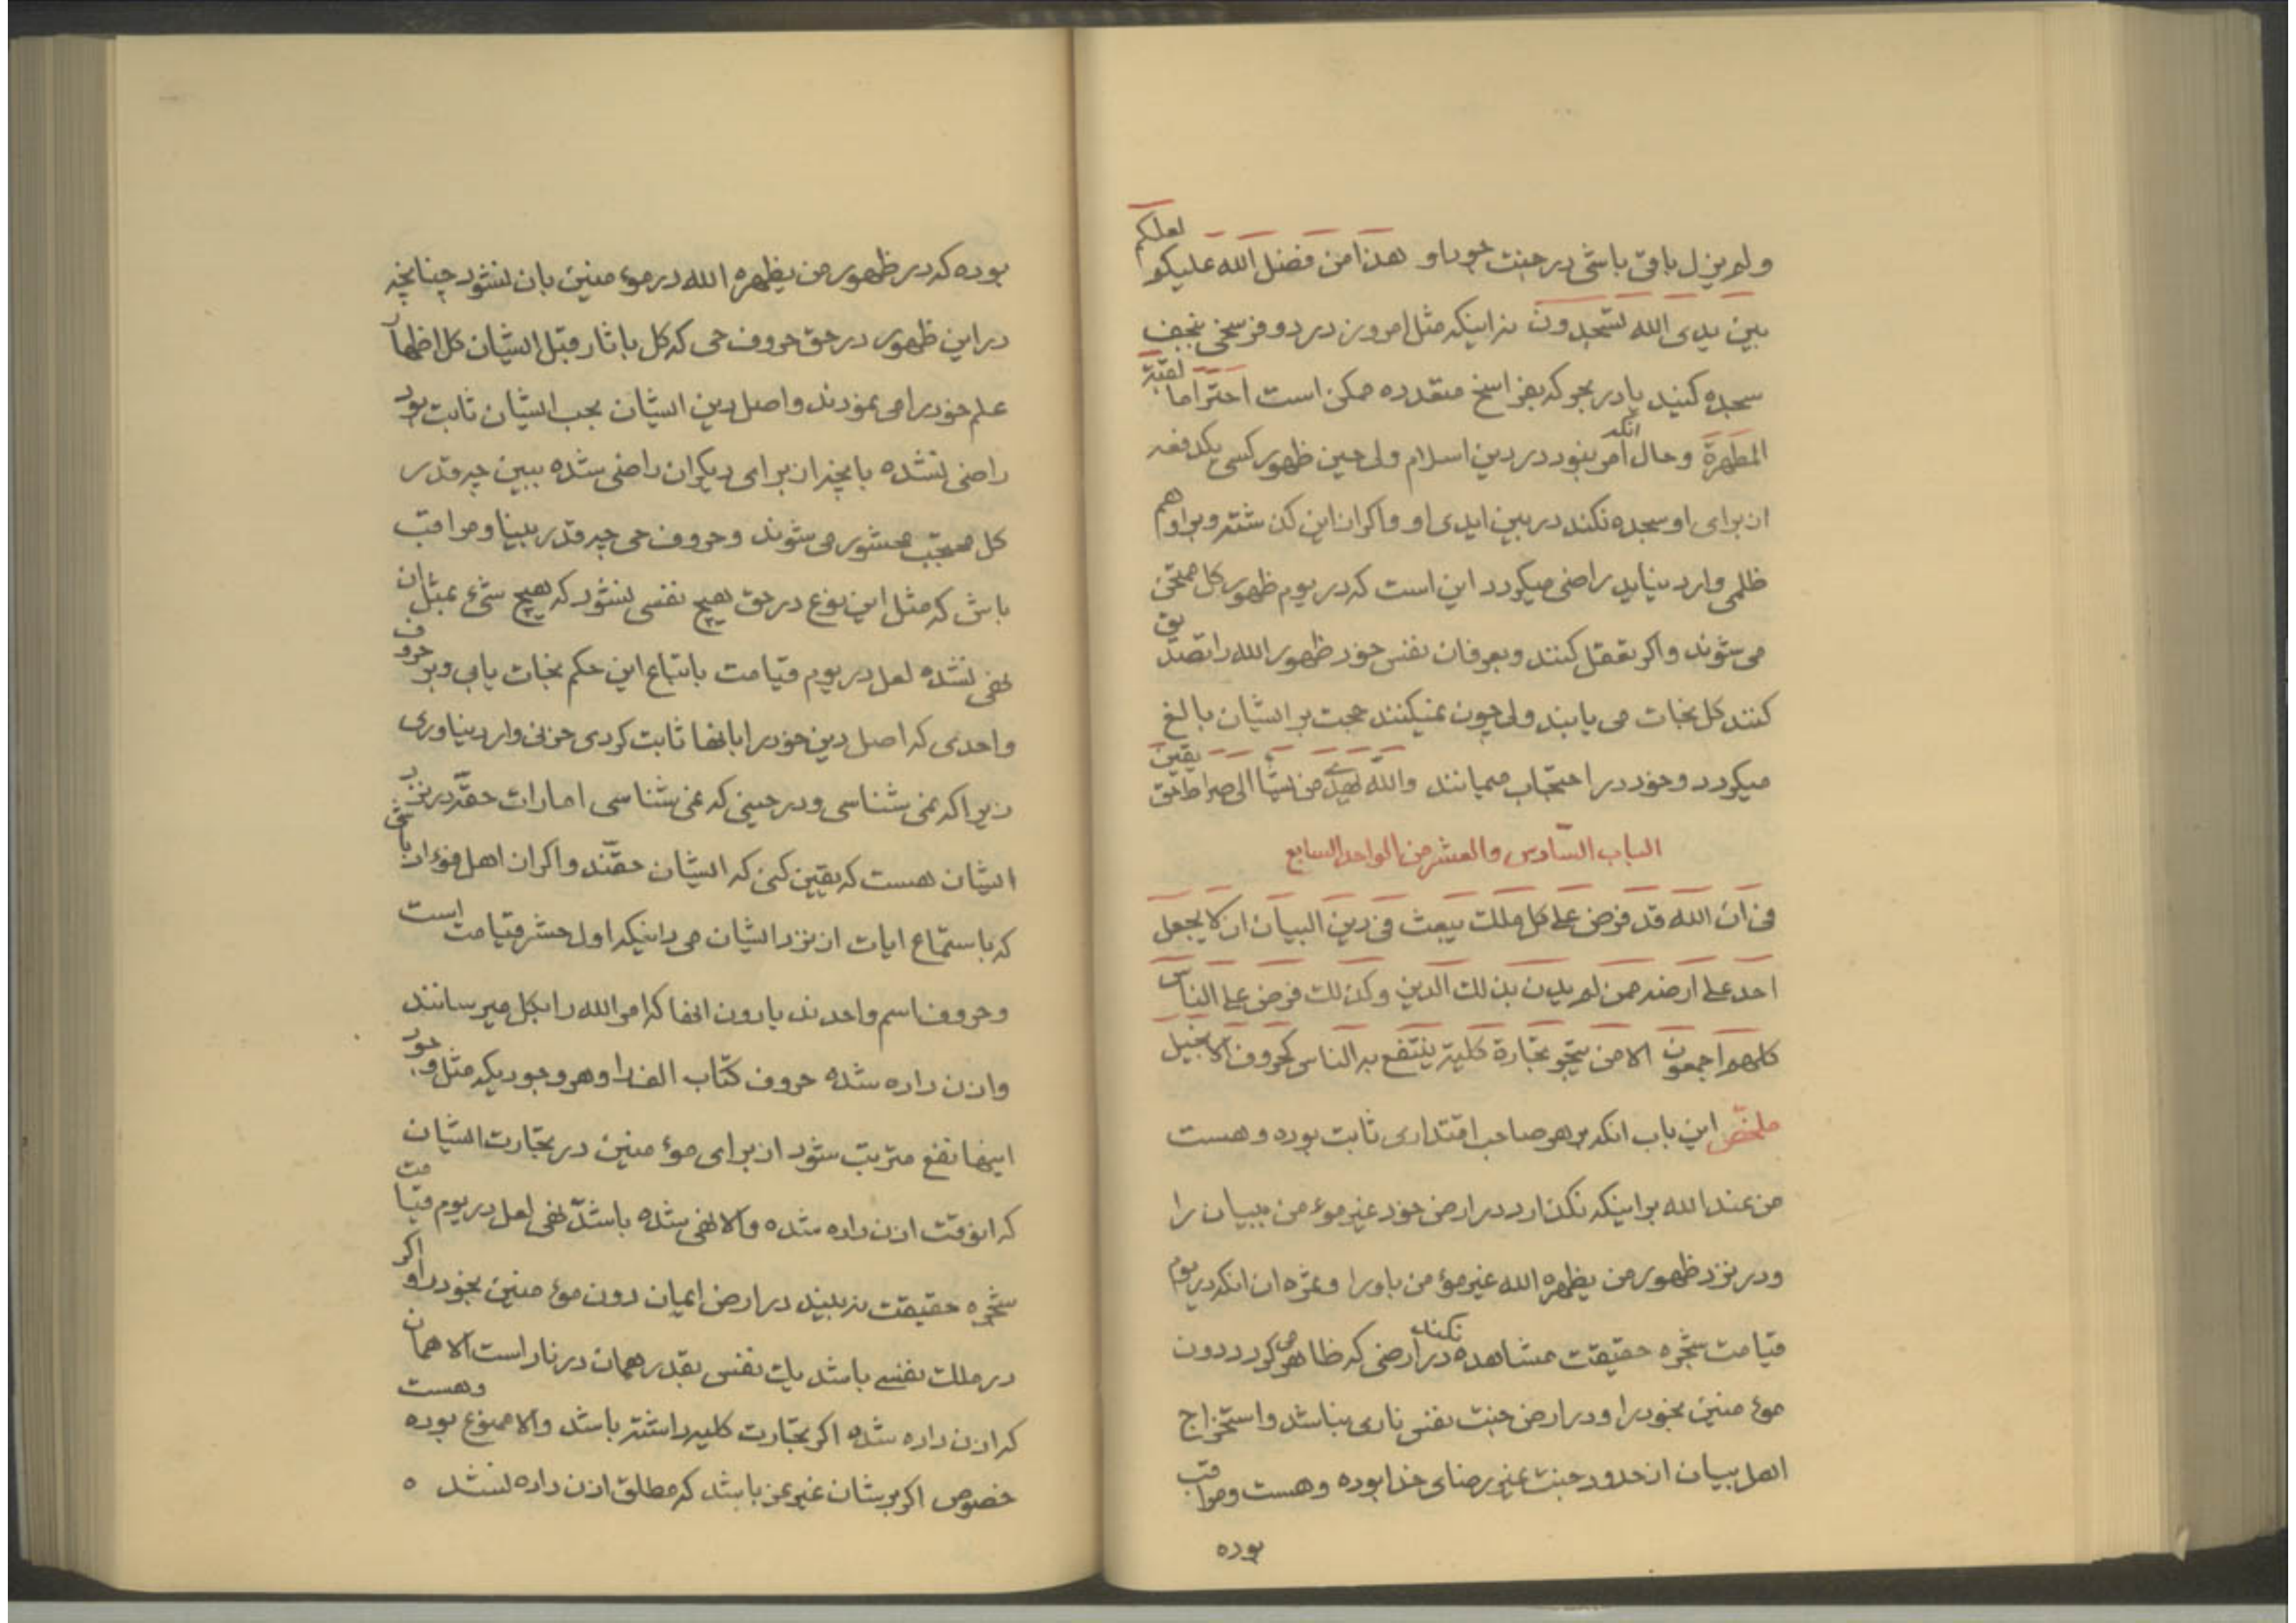 ولم یزل باقی باشی در جنت جود او هذا من فضل الله علیکم لعلکم
بین یدی الله تسجدون نه اینکه مثل امروز در دو فرسخی نجف
سجده کنید یا در بحر که بفراسخ متعدده ممکن است احتراما لقبة
المطهرة و حال انکه امر نبود در دین اسلام ولی حین ظهور کسی یکدفعه
از برای او سجده نکند در بین ایدی او و اگر از این گذشته و بر او هم
ظلمی وارد نیاید راضی میگردد این است که در یوم ظهور کل ممتحن
می شوند و اگر تعقل کنند و بعرفان نفس خود ظهور الله را تصدیق
کنند کل نجات می یابند ولی چون نمیکنند حجت بر ایشان بالغ
میگردد و خود در احتجاب میمانند والله یهدی من یشاء الی صراط حق یقین
الباب السّادس والعشر من الواحد السابع
فی ان الله قد فرض علی کل ملک یبعث فی دین البیان ان لا یجعل
احد علی ارضه ممن لم یدن بذلک الدین و کذلک فرض علی الناس
کلهم اجمعون الا من یتجر تجارة کلیة ینتفع به الناس کحروف الانجیل
ملخّص این باب انکه بر هر صاحب اقتداری ثابت بوده و هست
من عند الله بر اینکه نگذارد در ارض خود غیر موءمن ببیان را
و در نزد ظهور من یظهره الله غیر موءمن باو را و ثمره ان انکه در یوم
قیامت شجره حقیقت مشاهده نکند در ارضی که ظاهر می گردد دون
موء منین بخود را و در ارض جنت نفس ناری نباشد و استخراج
اهل بیان از حدود جنت بغیر رضای خدا بوده و هست و مراقب
بوده
بوده که در ظهور من یظهره الله در موء منین بان نشود چنانچه
در این ظهور در حق حروف حی که کل باثار قبل ایشان کل اظهار
علم خود را می نمودند و اصل دین ایشان بحب ایشان ثابت بود
راضی نشده بانچه از برای دیگران راضی شده ببین چه قدر
کل محتجب محشور می شوند و حروف حی چه قدر بینا و مراقب
باش که مثل این نوع در حق هیچ نفسی نشود که هیچ شیء بمثل ان
نهی نشده لعل در یوم قیامت باتباع این حکم نجات یابی و بر حروف
واحدی که اصل دین خود را بانها ثابت کردی حزنی وارد نیاوری
زیرا که نمی شناسی و در حینی که نمی شناسی امارات حقّه در نزد
ایشان هست که یقین کنی که ایشان حقّند و اگر از اهل فوءاد باشی
که باستماع ایات از نزد ایشان می دانیکه اول حشر قیامت است
و حروف اسم واحدند یا دون انها که امر الله را بکل میرسانند
و اذن داده شده حروف کتاب الف را و هر وجودیکه مثل وجود
اینها نفع مترتب شود از برای موء منین در تجارت ایشان
که انوقت اذن داده شده و الا نهی شده باشدّ نهی لعل در یوم قیامت
شجره حقیقت نه بیند در ارض ایمان دون موء منین بخود را و اگر
در ملک نفسی باشد یک نفس بقدر همان در نار است الا همان
که اذن داده شده اگر تجارت کلیه داشته باشد و الا ممنوع بوده و هست
خصوص اگر بر شان غیر عز باشد که مطلق اذن داده نشده ه